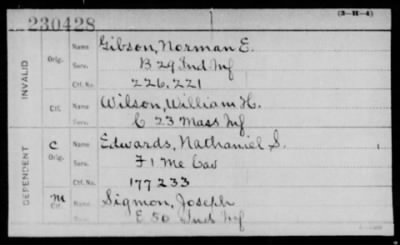 230428
(3-H-4)
INVALID
Orig.
Name Gibson, Norman E.
Serv. B 29 Ind Inf
Ctf. No. 226,221
Ctf.
Name Wilson, William H.
Serv. C 23 Mass Inf
DEPENDENT
C
Orig.
Name Edwards, Nathaniel S.
Serv. F 1 Me Cav
Ctf. No. 177233
M
Ctf.
Name Sigmon, Joseph
Serv. E 50 Ind Inf